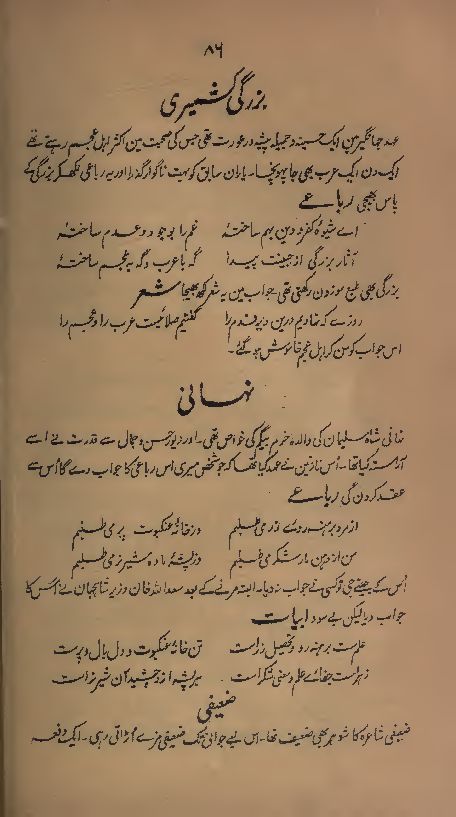 ۸۶
بزرگی کشمیری
عہد جہانگیر مین ایک حسینہ و جمیلہ پیشہ ور عورت تھی جس کی صحبت مین اکثر اہل عجم رہتے تھے
ایک دن ایک عرب بھی جا پہونچا۔ یاران سابق کو بہت ناگوار گذرا اور یہ رباعی لکھکر بزرگی کے
پاس بھیجی رباعے
اے شیوۂ کفر و دین بہم ساختۂ غم را بوجود و عدم ساختۂ
آثار بزرگی از جبینت پیدا گہ با عرب و گہ بہ عجم ساختۂ
بزرگی بھی طبع موزون رکھتی تھی۔ جواب مین یہ شعر لکھ بھیجا شعر
روزے کہ نہادیم درین دیر قدم را گفتیم صلائیت عرب را و عجم را
اس جواب کو سن کر اہل عجم خاموش ہو گئے۔
نہانی
نہانی شاہ سلیمان کی والدہ خرم بیگم کی خواص تھی۔ اور زیور حسن و جمال سے قدرت نے اسے
آراستہ کیا تھا۔ اُس نازنین نے عہد کیا تھا کہ جو شخص میری اس رباعی کا جواب دے گا اُس سے
عقد کر دن گی رباعے
از مرد برہنہ روے زر می طلبم در خانۂ عنکبوت پر می طلبم
من از دہن مار شکر می طلبم وز پشۂ مادہ شیر نر می طلبم
اُس کے جیتے جی تو کسی نے جواب نہ دیا۔ البتہ مرنے کے بعد سعد اللہ خان وزیر شاہجہان نے اُس کا
جواب دیا لیکن بے سود ابیات
علم ست برہنہ رو و تحصیل زر است تن خانۂ عنکبوت و دل بال و پر ست
زہر است جفائے علم و معنی شکر است ہر پشہ ازو چشید آن شیر نر است
ضعیفی
ضعیفی شاعرہ کا شوہر بھی ضعیف تھا۔ اس لیے جوانی تک ضعیفی مزے اُڑاتی رہی۔ ایک دفعہ